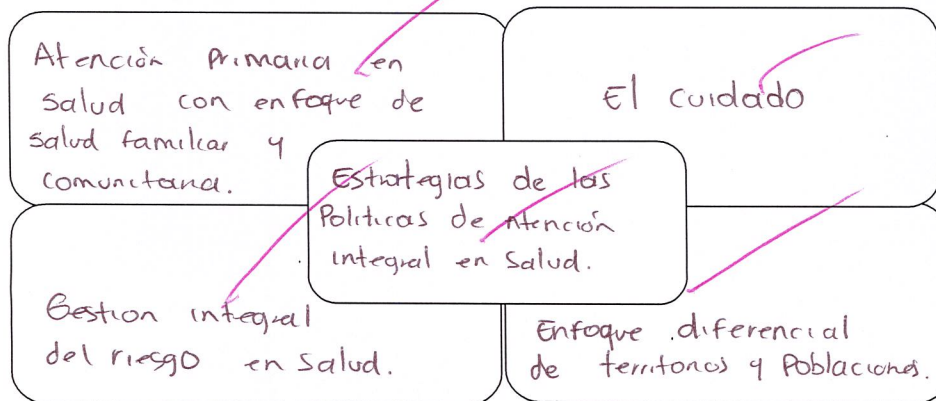 Atención Primaria en
salud con enfoque de
salud familiar y
comunitaria.
El cuidado
Estrategias de las
Políticas de Atención
integral en Salud.
Gestion integral
del riesgo en salud.
Enfoque diferencial
de territorios y Poblaciones.